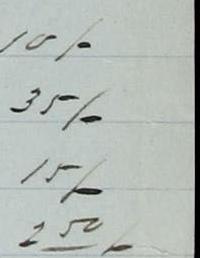 10/-
35/-
15/-
2 50/-